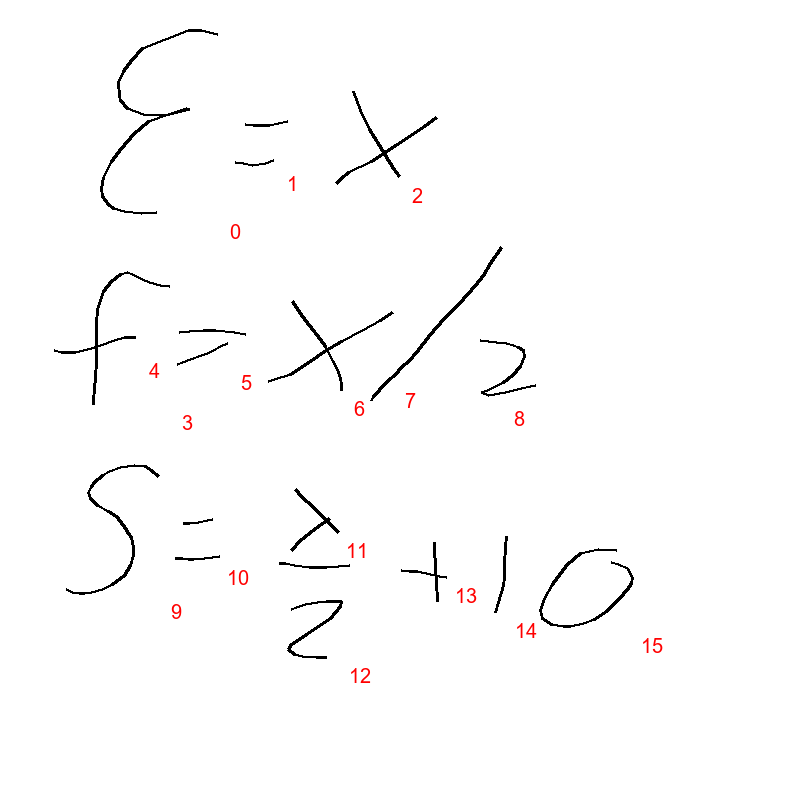 E = x
0 1 2
f = x / 2
3 4 5 6 7 8
S = x/2 + 10
9 10 11 12 13 14 15